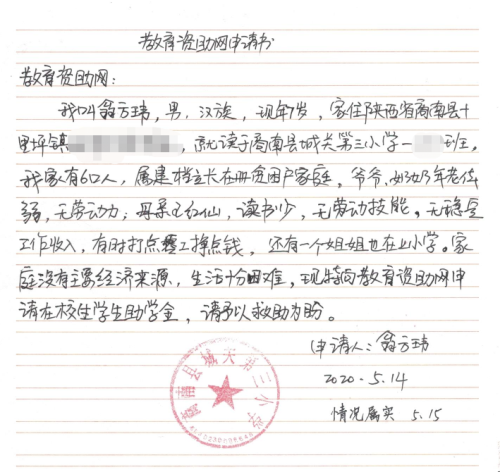 教育资助网申请书
教育资助网：
我叫翁方玮，男，汉族，现年7岁，家住陕西省商南县十
里坪镇，就读于商南县城关第三小学一班，
我家有6口人，属建档立卡在册贫困户家庭，爷爷、奶奶年老体
弱，无劳动力；母亲王红仙，读书少，无劳动技能。无稳定
工作收入，有时打点零工挣点钱，还有一个姐姐也在上小学。家
庭没有主要经济来源，生活十分困难，现特向教育资助网申
请在校生学生助学金，请予以救助为盼。
申请人：翁方玮
2020.5.14
情况属实 5.15
商南县城关第三小学